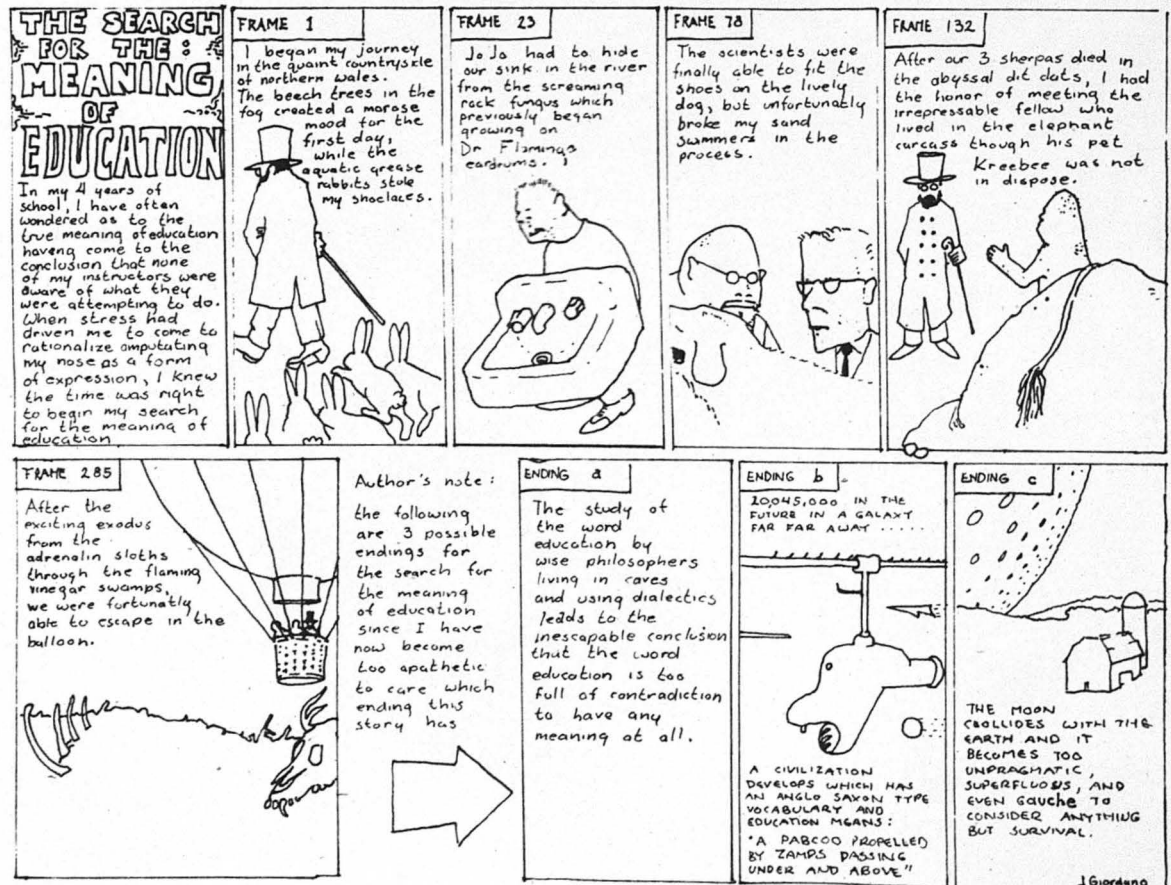 THE SEARCH
FOR THE:
MEANING
OF
EDUCATION
In my 4 years of
school, I have often
wondered as to the
true meaning of education
having come to the
conclusion that none
of my instructors were
aware of what they
were attempting to do.
When stress had
driven me to come to
rationalize amputating
my nose as a form
of expression, I knew
the time was right
to begin my search
for the meaning of
education
FRAME 1
I began my journey
in the quaint countryside
of northern wales.
The beech trees in the
fog created a morose
mood for the
first day,
while the
aquatic grease
rabbits stole
my shoelaces.
FRAME 23
JoJo had to hide
our sink in the river
from the screaming
rock fungus which
previously began
growing on
Dr Flamings
eardrums.
FRAME 78
The scientists were
finally able to fit the
shoes on the lively
dog, but unfortunatly
broke my sand
swimmers in the
process.
FRAME 132
After our 3 sherpas died in
the abyssal dit dats, I had
the honor of meeting the
irrepressable fellow who
lived in the elephant
carcass though his pet
Kreebee was not
in dispose.
FRAME 285
After the
exciting exodus
from the
adrenalin sloths
through the flaming
vinegar swamps,
we were fortunatly
able to escape in the
balloon.
Author's note:
the following
are 3 possible
endings for
the search for
the meaning
of education
since I have
now become
too apathetic
to care which
ending this
story has
ENDING a
The study of
the word
education by
wise philosophers
living in caves
and using dialectics
leads to the
inescapable conclusion
that the word
education is too
full of contradiction
to have any
meaning at all.
ENDING b
20,045,000 IN THE
FUTURE IN A GALAXY
FAR FAR AWAY .....
A CIVILIZATION
DEVELOPS WHICH HAS
AN ANGLO SAXON TYPE
VOCABULARY AND
EDUCATION MEANS:
"A PABCOO PROPELLED
BY ZAMPS PASSING
UNDER AND ABOVE"
ENDING c
THE MOON
COLLIDES WITH THE
EARTH AND IT
BECOMES TOO
UNPRAGMATIC,
SUPERFLUOSIS, AND
EVEN GAUCHE TO
CONSIDER ANYTHING
BUT SURVIVAL.
J Giordano